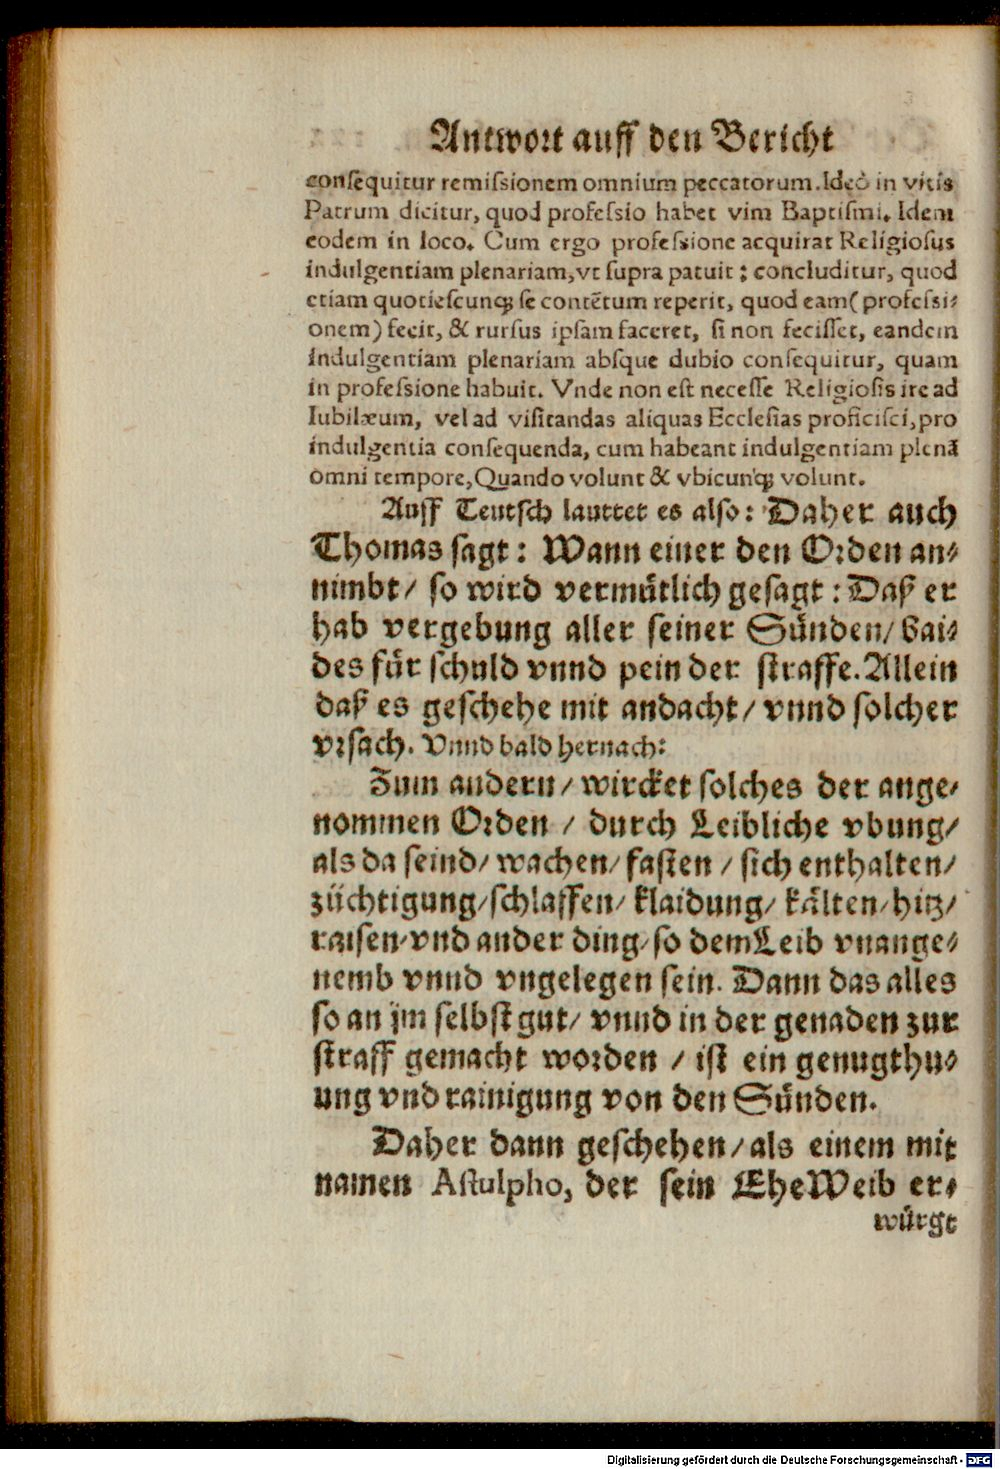 Antwort auff den Bericht
conſequitur remiſsionem omnium peccatorum. Ideò in vitis
Patrum dicitur, quod profeſsio habet vim Baptiſmi. Idem
eodem in loco. Cum ergo profeſsione acquirat Religioſus
indulgentiam plenariam, vt ſupra patuit; concluditur, quod
etiam quotieſcunq; ſe contẽtum reperit, quod eam (profeſsi⸗
onem) fecit, & rurſus ipſam faceret, ſi non feciſſet, eandem
indulgentiam plenariam abſque dubio conſequitur, quam
in profeſsione habuit. Vnde non eſt neceſſe Religioſis ire ad
Iubilæum, vel ad viſitandas aliquas Eccleſias proficiſci, pro
indulgentia conſequenda, cum habeant indulgentiam plenã
omni tempore, Quando volunt & vbicunq; volunt.
Auff Teutſch lauttet es alſo: Daher auch
Thomas ſagt: Wann einer den Orden an⸗
nimbt/ ſo wird vermuͤtlich geſagt: Daß er
hab vergebung aller ſeiner Suͤnden/ bai⸗
des fuͤr ſchuld vnnd pein der ſtraffe. Allein
daß es geſchehe mit andacht/ vnnd ſolcher
vrſach. Vnnd bald hernach:
Zum andern/ wircket ſolches der ange⸗
nommen Orden / durch Leibliche vbung/
als da ſeind/ wachen/ faſten / ſich enthalten/
züchtigung/ ſchlaffen/ klaidung/ kaͤlten/ hitz/
raiſen/ vnd ander ding/ ſo dem Leib vnange⸗
nemb vnnd vngelegen ſein. Dann das alles
ſo an jm ſelbſt gut/ vnnd in der genaden zur
ſtraff gemacht worden / iſt ein genugthu⸗
ung vnd rainigung von den Suͤnden.
Daher dann geſchehen/ als einem mit
namen Aſtulpho, der ſein EheWeib er⸗
wuͤrgt
Digitalisierung gefördert durch die Deutsche Forschungsgemeinschaft - DFG